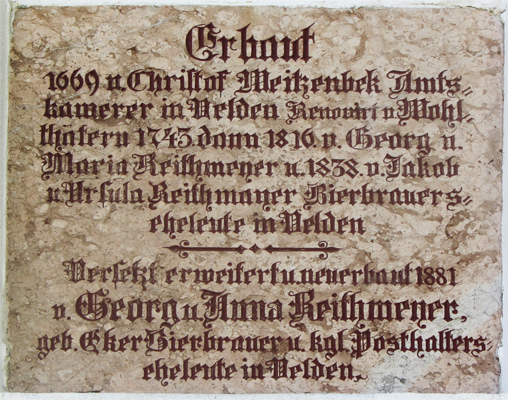 Erbaut
1669 v. Christof Meitzenbek Amts-
kamerer in Velden Renovirt v. Wohl-
thätern 1743. dann 1816. v. Georg u.
Maria Reithmeyer u. 1838. v. Jakob
u. Ursula Reithmayer Bierbrauers-
eheleute in Velden
Versetzt erweitert u. neuerbaut 1881
v. Georg u. Anna Reithmeyer,
geb. Eker Bierbrauer u. kgl. Posthalters-
eheleute in Velden.